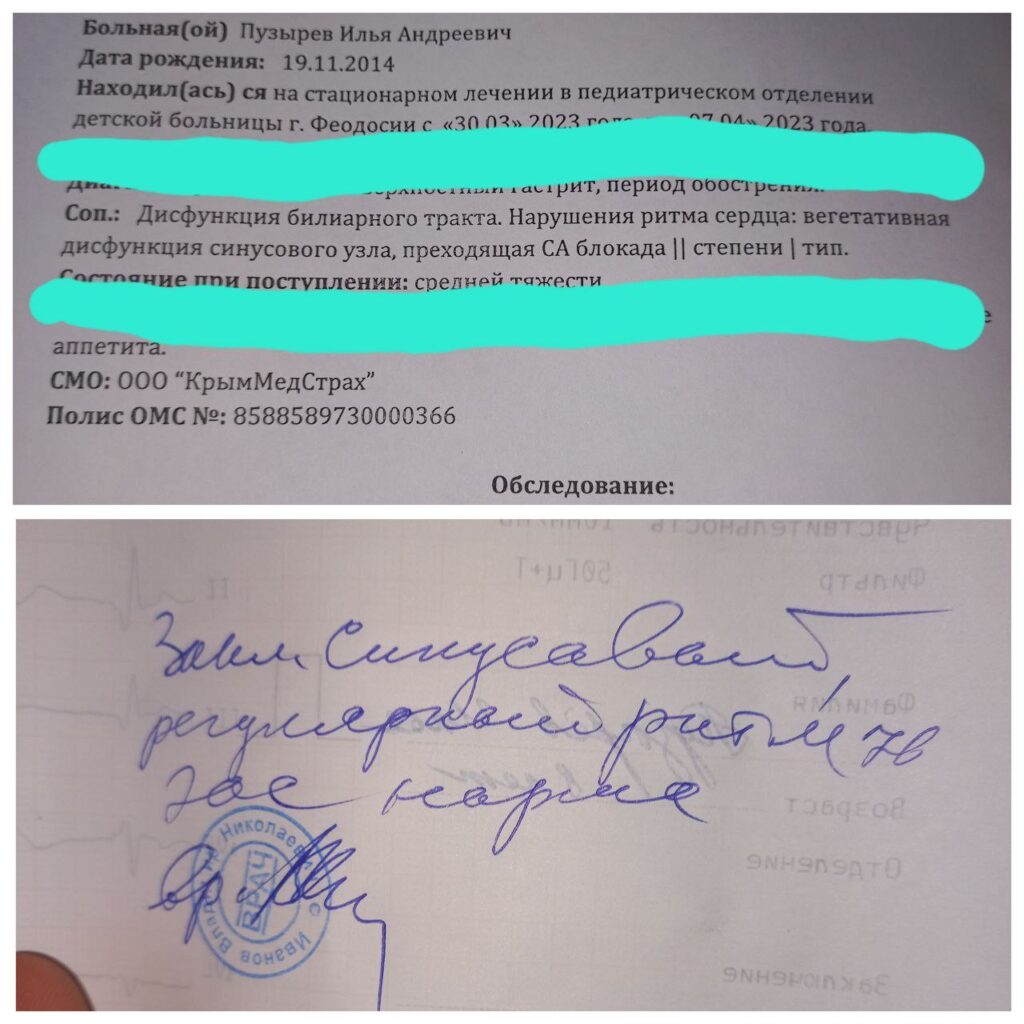 Больная(ой) Пузырев Илья Андреевич
Дата рождения: 19.11.2014
Находил(ась) ся на стационарном лечении в педиатрическом отделении
детской больницы г. Феодосии с «30.03» 2023 года 07.04» 2023 года.
гастрит, период обострения.
Соп.: Дисфункция билиарного тракта. Нарушения ритма сердца: вегетативная
дисфункция синусового узла, преходящая СА блокада || степени | тип.
Состояние при поступлении: средней тяжести
аппетита.
СМО: ООО “КрымМедСтрах”
Полис ОМС №: 8588589730000366
Обследование:
Чувствительность
Фильтр 50Гц+Т
II
Закл. Синусавый
регулярный ритм 78
Фамилия
эос нарма
Возраст
Отделение
вр.
Иванов Владимир Николаевич
ВРАЧ
Заключение